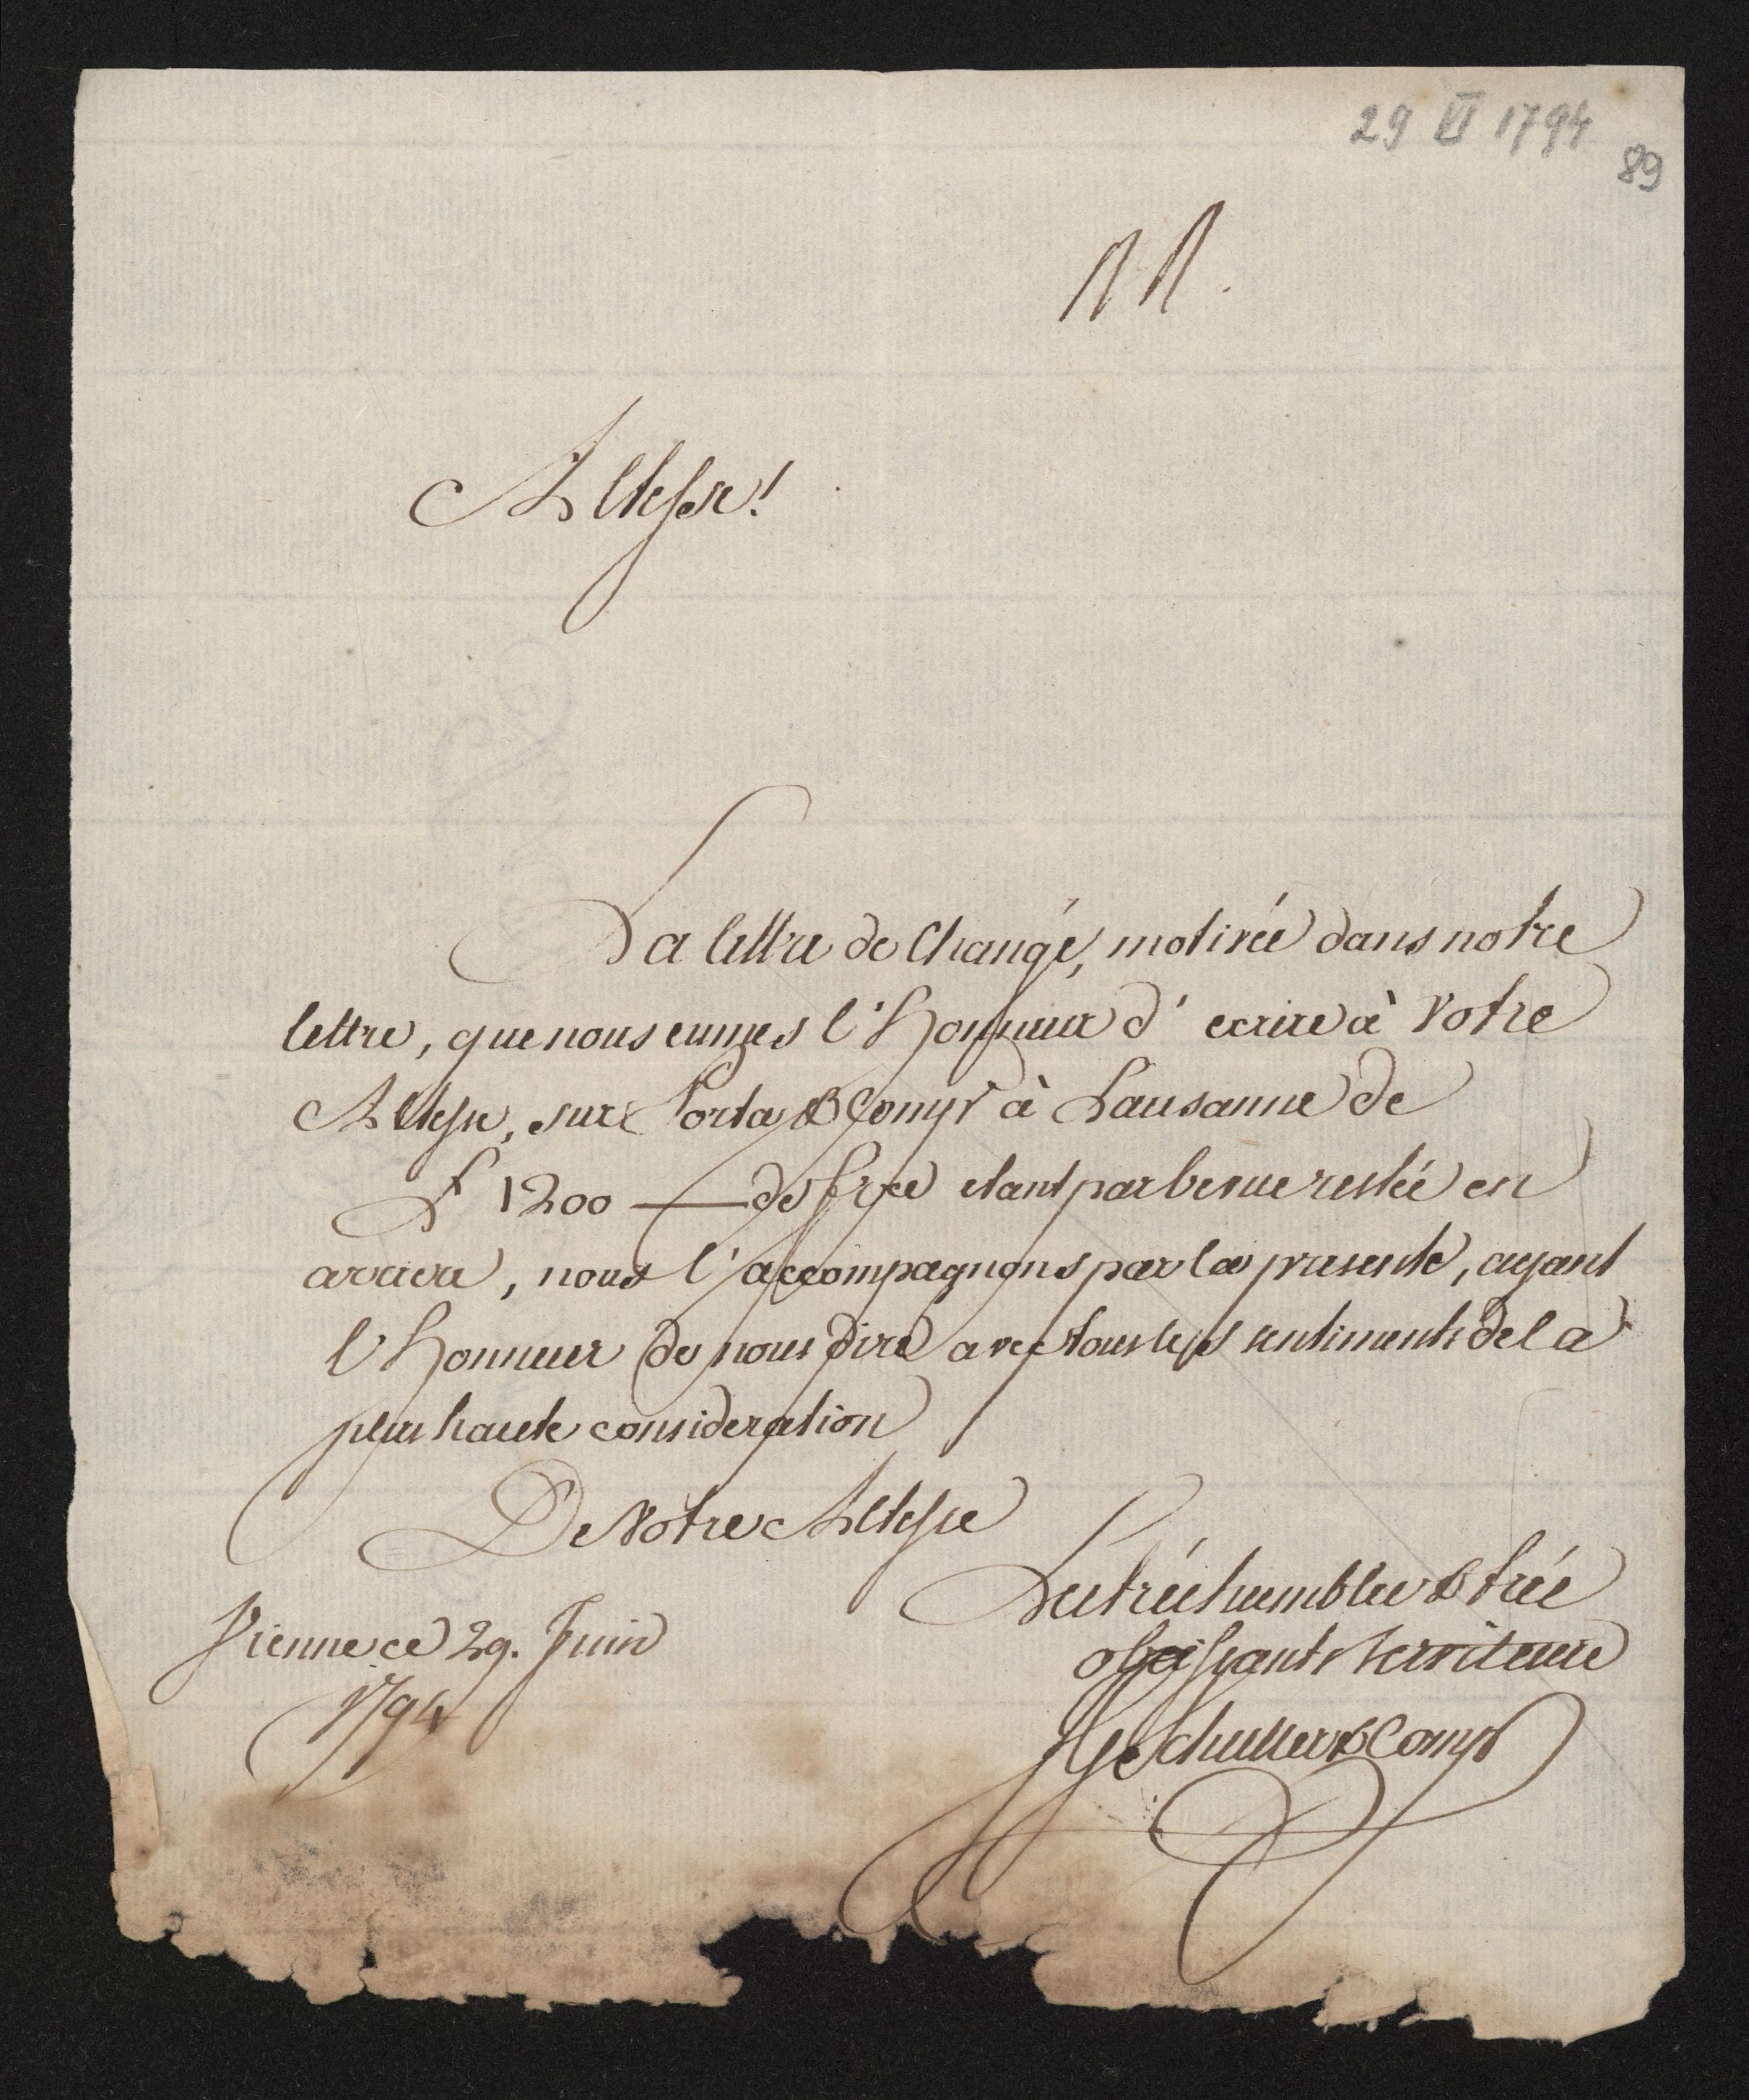 29 VI 1794
89
Altesse!
La lettre de Change, motivée dans notre
lettre, que nous eumes l'Honneur d'ecrire à Votre
Altesse, sur Porta & Comp à Lausanne de
f 1200 — de etant par bevue restée en
arriere, nous l'accompagnons par la presente, ayant
l'Honneur de nous dire avec tous les sentiments de la
plus haute consideration
De Votre Altesse
Les trés humbles & trés
Vienne ce 29. Juin
obeissants Serviteurs
1794
Schuller & Comp